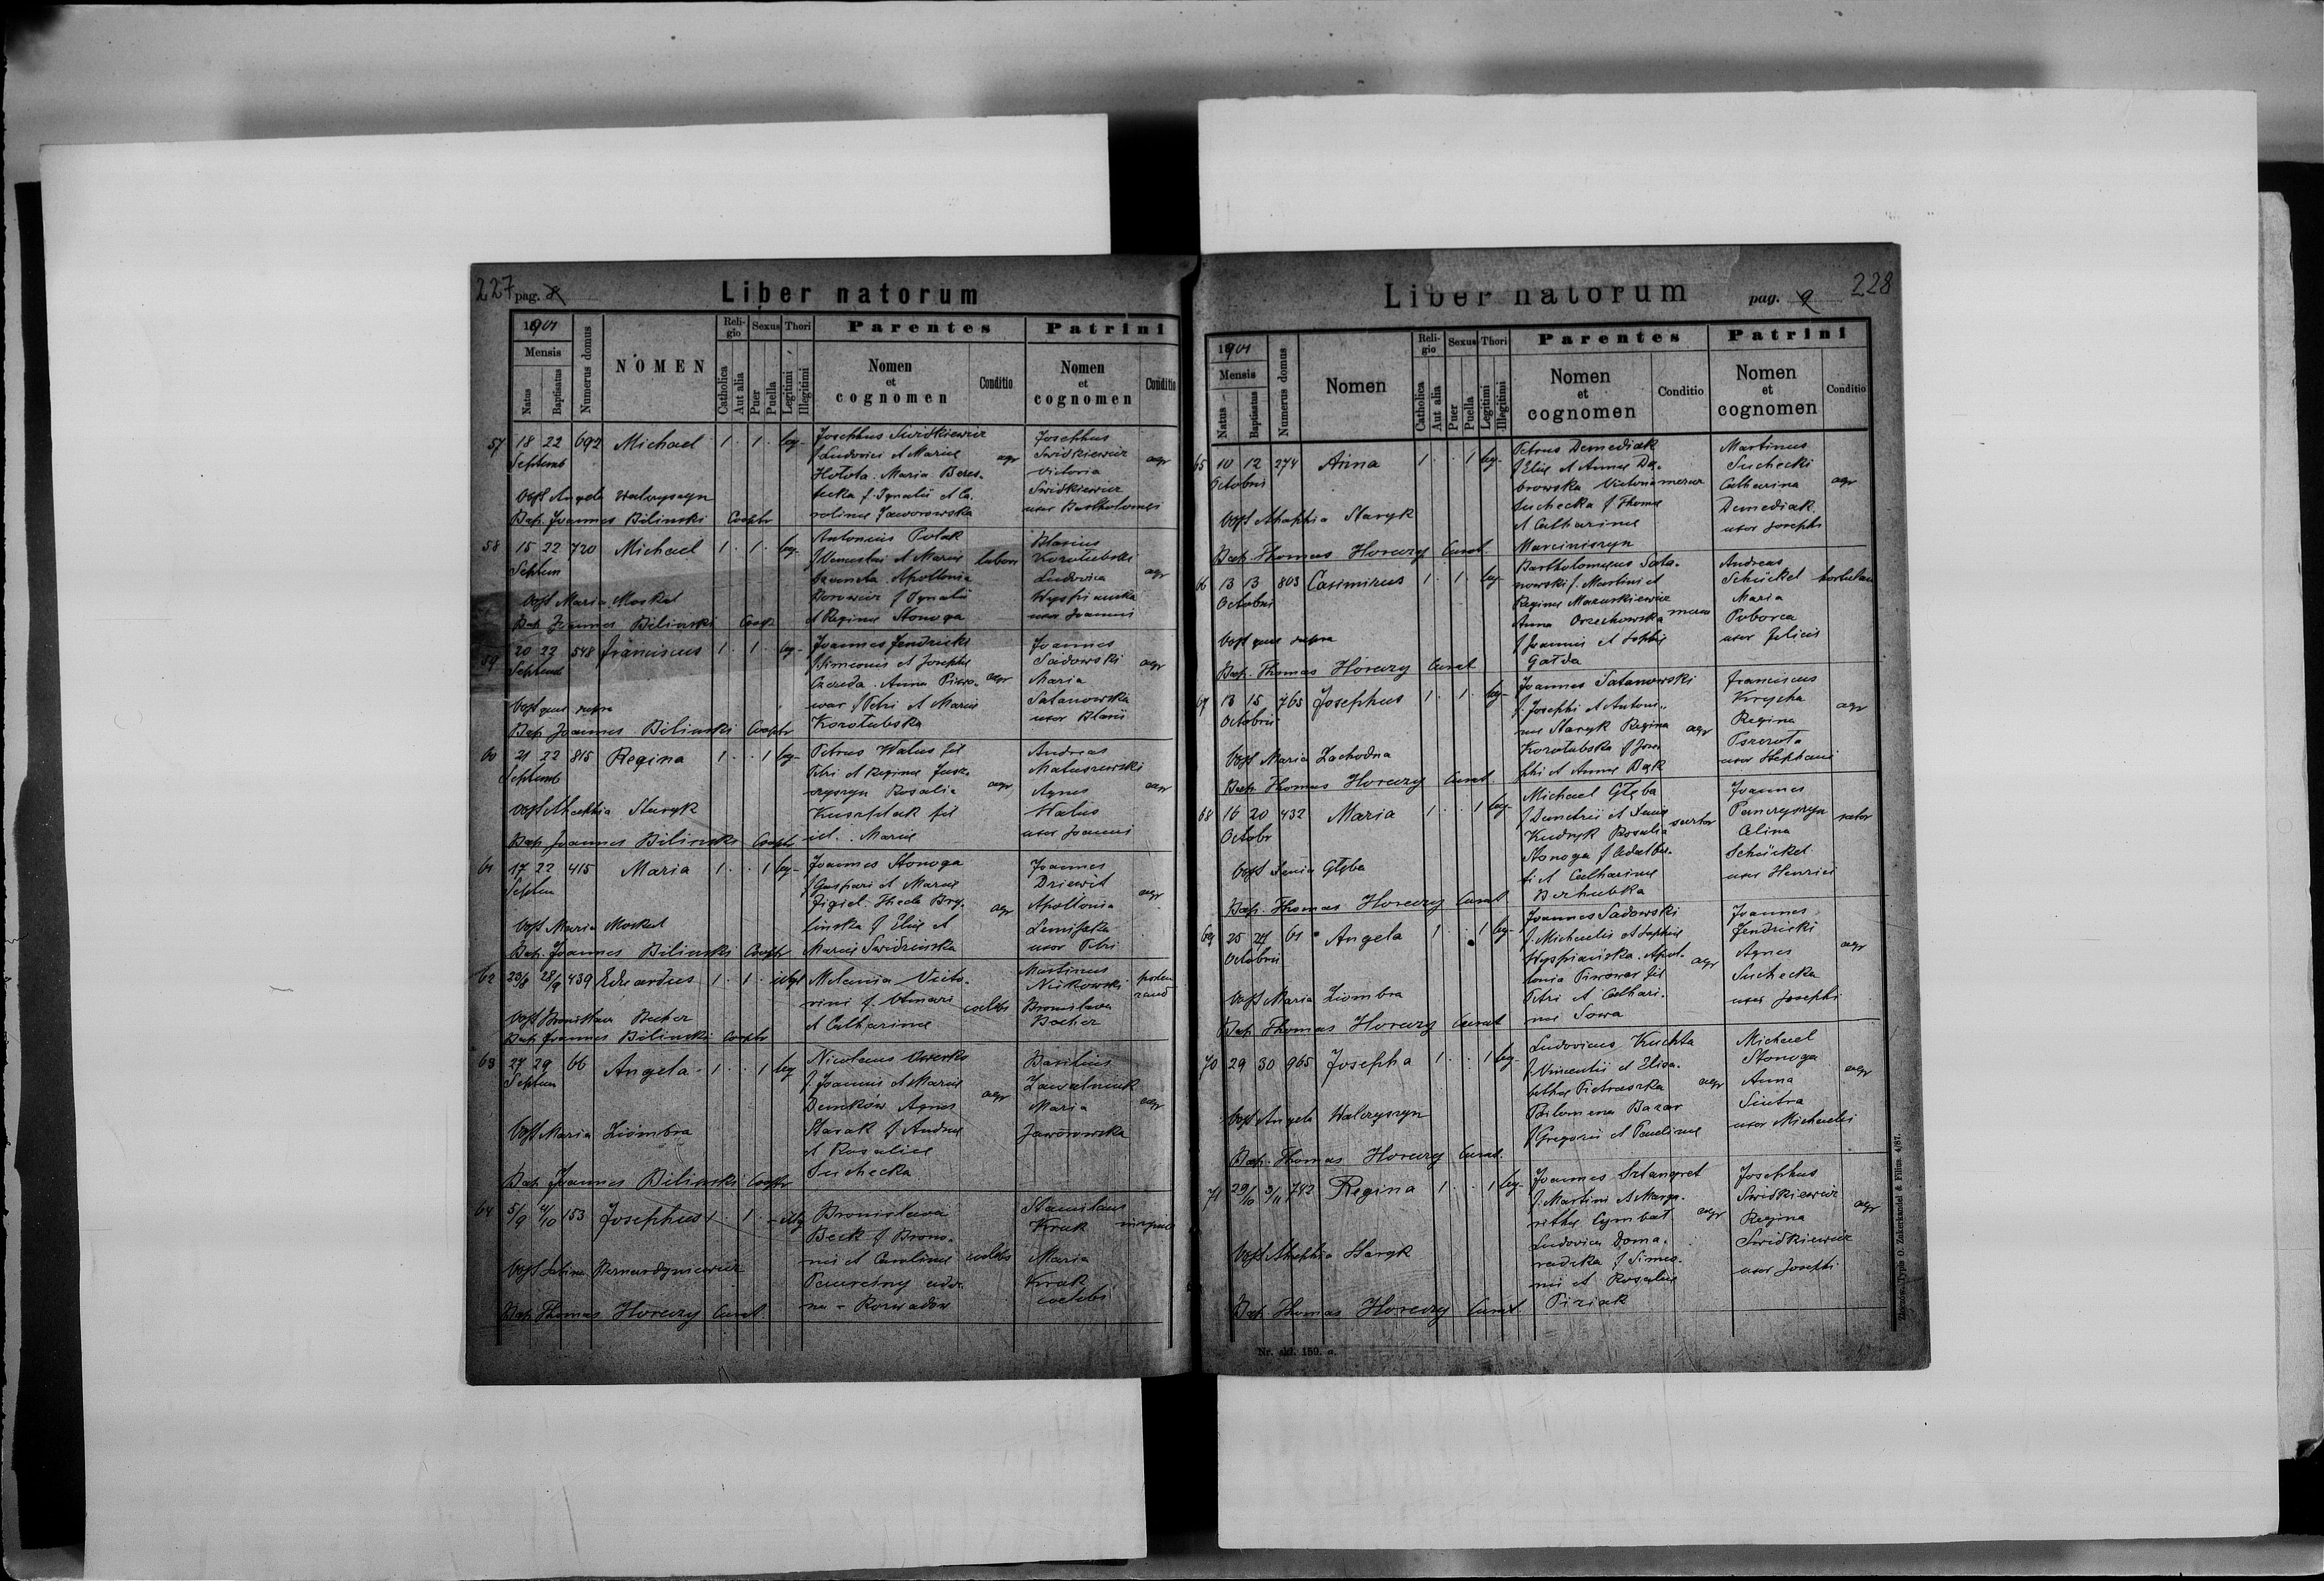 227 pag. 8
Liber natorum
1901
Mensis
Natus
Baptisatus
Numerus domus
NOMEN
Religio
Catholica
Aut alia
Sexus
Puer
Puella
Thori
Legitimi
Illegitimi
Parentes
Nomen et cognomen
Conditio
Patrini
Nomen et cognomen
Conditio
57 18 22 692 Michael 1 1 leg
Septemb
Josephus Swidkiewicz
f Ludovici et Mariae
Hołota. Maria Beres-
tecka f. Ignatii et Ca-
rolinae Jaworowska
agr
Josephus
Swidkiewicz
Victoria
Swidkiewicz
uxor Bartholomei
agr
Obst Angela Walczyszyn
Bap. Joannes Biliński Cooptr
58 15 22 720 Michael 1 1 leg
Septem
Antonius Polak
et Mariae
Apollonia
f Ignatii
et Reginae Stonoga
Blasius
Korołubski
Ludovica
Wyspianska
uxor Joannis
agr
Obst Maria Moskal
Bap Joannes Biliński Coop
59 20 22 548 Franciscus 1 1 leg
Septemb
Joannes Jendricki
f Simeonis et Josephae
Czereda. Anna Piwo-
war f Petri et Mariae
Korołubska
agr
Joannes
Sadowski
Maria
Satanowska
uxor Blasii
agr
Obst quae supra
Bap Joannes Biliński Cooptr
60 21 22 815 Regina 1 1 leg
Septemb
Petrus Walus fil
Petri et Reginae Jusz-
czyszyn Rosalia
fil
Mariae
agr
Andreas
Matuszewski
Agnes
Walus
uxor Joannis
agr
Obst Ahaphia Staryk
Bap Joannes Biliński Cooptr
61 17 22 415 Maria 1 1 leg
Septem
Joannes Stonoga
f Gaspari et Mariae
Figiel. Thecla Bry-
linska f Eliae et
Mariae Swidzinska
agr
Joannes
Driewit
Apollonia
uxor Petri
agr
Obst Maria Moskal
Bap. Joannes Biliński Cooptr
62 23/8 28/9 439 Eduardus 1 1 illegt
Melania Victo-
rini f. Otmari
et Catharinae
coelebs
Martinus
Bronislava
Becher
Obst Bronislava Becher
Bap Joannes Biliński Cooptr
63 27 29 66 Angela 1 1 leg
Septem
Nicolaus
f Joannis et Mariae
Demków Agnes
Starak f Andreae
et Rosaliae
Suchecka
agr
Basilius
Zawalniuk
Maria
Jaworowska
agr
Obst Maria Ziombra
Bap Joannes Biliński Cooptr
64 5/9 4/10 153 Josephus 1 1 illeg
Bronislava
Beck f Brono-
nis et Carolinae
coelebs
Stanislaus
Kruk
Maria
Kruk
coelebs
Obst Sabina Bernardyniewicz
Bap Thomas Horaczy Curat.
Liber natorum
pag. 9 228
1901
Mensis
Natus
Baptisatus
Numerus domus
Nomen
Religio
Catholica
Aut alia
Sexus
Puer
Puella
Thori
Legitimi
Illegitimi
Parentes
Nomen et cognomen
Conditio
Patrini
Nomen et cognomen
Conditio
65 10 12 274 Anna 1 1 leg
Octobris
Petrus Demediak
f Eliae et Annae Da-
browska Victoria
Suchecka f Thomae
et Catharinae
Marciniszyn
Martinus
Suchecki
Catharina
Demediak
uxor Josephi
agr
Obst Ahaphia Staryk
Bap. Thomas Horaczy Curat.
66 13 13 803 Casimirus 1 1 leg
Octobris
Bartholomaeus Sata-
nowski f. Martini et
Reginae Mazurkiewicz
Anna Orzechowska
f Joannis et Sophiae
Gałda
Andreas
Schückel
Maria
Poborca
uxor Felicis
Obst quae supra
Bap. Thomas Horaczy Curat
67 13 15 765 Josephus 1 1 leg
Octobris
Joannes Satanowski
f. Josephi et Antoni-
nae Staryk Regina
Korołubska f Jose-
phi et Annae Bąk
agr
Franciscus
Krycha
Regina
Pszczoła
uxor Stephani
agr
Obst Maria Zachodna
Bap. Thomas Horaczy Curat.
68 16 20 432 Maria 1 1 leg
Octobr
Michael Głęba
f Demetrii et Xeniae
Kudryk Rosalia
Stonoga f Adalber-
ti et Catharinae
Berhubka
sartor
Joannes
Panczyszyn
Celina
Schückel
uxor Henrici
Obst Xenia Głęba
Bap. Thomas Horaczy Curat
69 25 27 61 Angela 1 1 leg
Octobris
Joannes Sadowski
f. Michaelis et Sophiae
Wyspianska. Apol-
lonia Piwowar fil
Petri et Cathari-
nae Sowa
agr
Joannes
Jendricki
Agnes
Suchecka
uxor Josephi
agr
Obst Maria Ziombra
Bap. Thomas Horaczy Curat
70 29 30 965 Josepha 1 1 leg
Ludovicus Kuchta
f. Vincentii et Elisa-
bethae Pietraszka
Philomena Bazar
f Gregorii et Paulinae
agr
Michael
Stonoga
Anna
Siutra
uxor Michaelis
agr
Obst Angela Walczyszyn
Bap. Thomas Horaczy Curat.
71 29/10 3/11 742 Regina 1 1 leg
Joannes Sztangret
f. Martini et Marga-
rithae Cymbał
Ludovica Doma-
radzka f Simeo-
nis et Rosaliae
Piziak
agr
Josephus
Swidkiewicz
Regina
Swidkiewicz
uxor Josephi
agr
Obst Ahaphia Staryk
Bap. Thomas Horaczy Curat
Nr. skł. 150. a.
Złoczów, Typis O. Zukerkandel & Filius. 4/87.